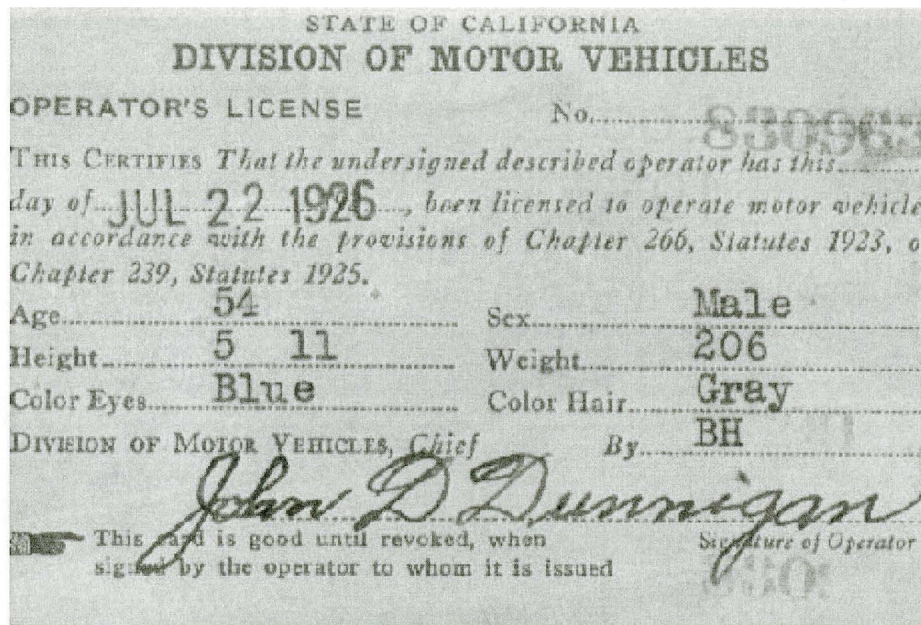 STATE OF CALIFORNIA
DIVISION OF MOTOR VEHICLES
OPERATOR'S LICENSE No.
THIS CERTIFIES That the undersigned described operator has this
day of JUL 22 1926, been licensed to operate motor vehicle
in accordance with the provisions of Chapter 266, Statutes 1923, o
Chapter 239, Statutes 1925.
Age 54 Sex Male
Height 5 11 Weight 206
Color Eyes Blue Color Hair Gray
DIVISION OF MOTOR VEHICLES, Chief By BH
John D Dunnigan
This card is good until revoked, when Signature of Operator
signed by the operator to whom it is issued